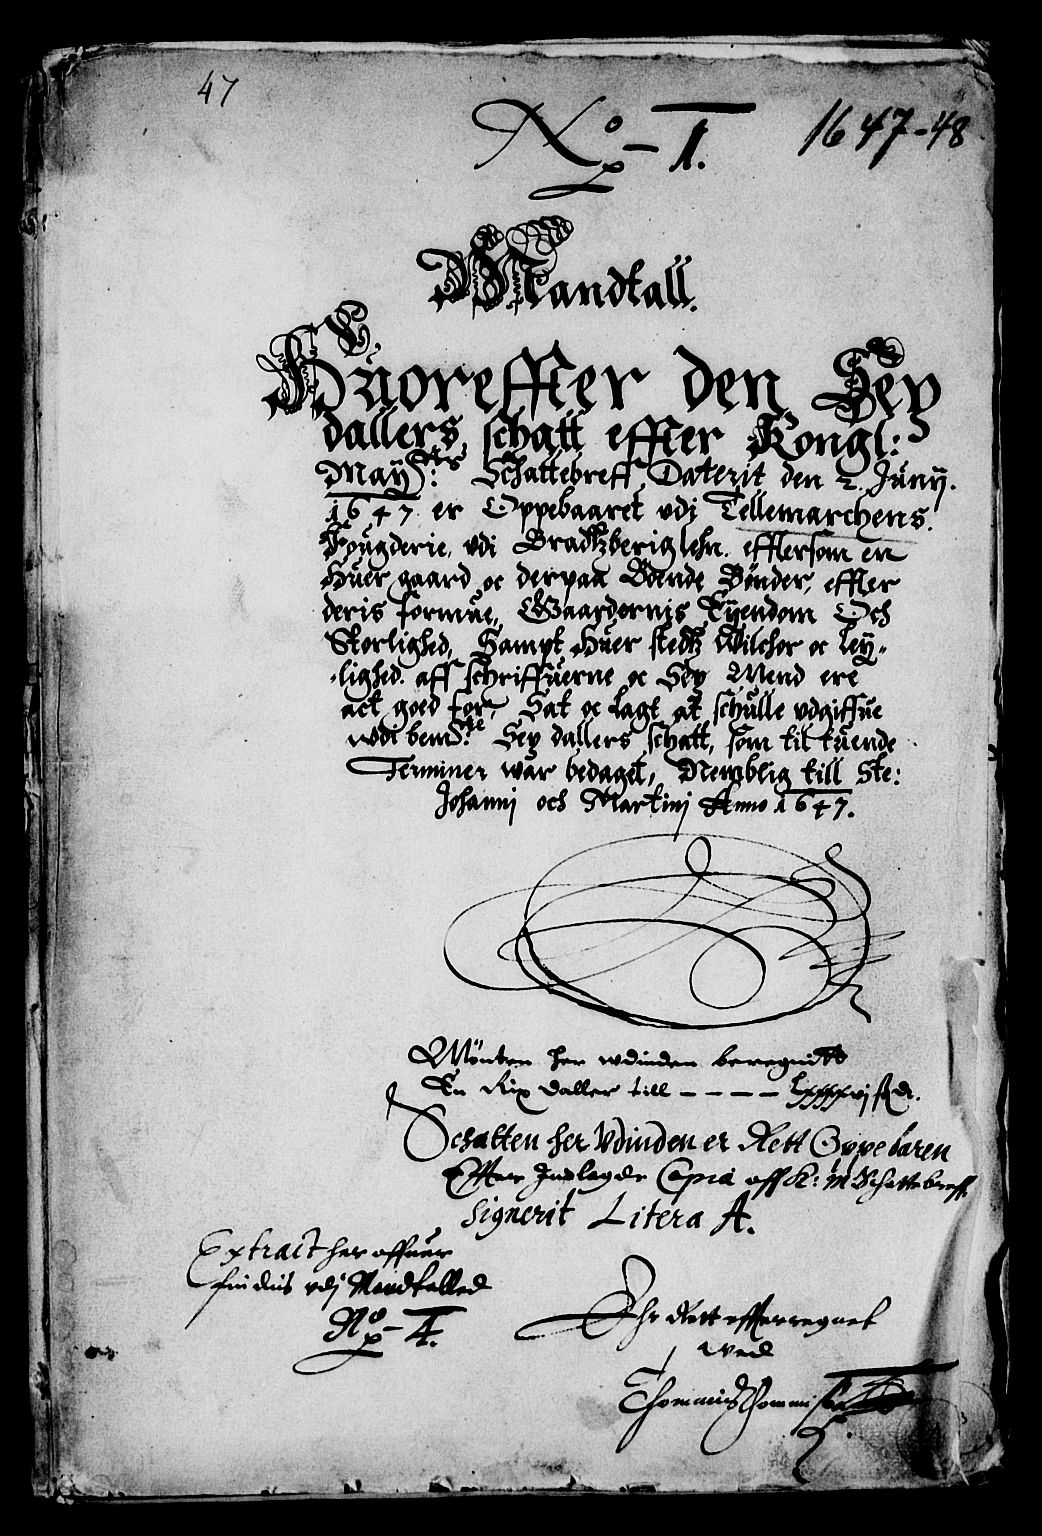 47
No 1.
1647-48
Mandtall.
Huoreffter den Sex
dallers schatt effter Kongl:
Mayts: Schattebreff Daterit den 2. Juny.
1647 er Oppebaaret vdi Tellemarchens
Fougderie, vdi Bradtzberig lehn. efftersom en
Huer gaard oc derpaa Boende Bønder, effter
deris formue, Gaardernis Eyendom Och
Storlighed, Sampt Huer stedtz Wilchor oc Ley-
-lighed. aff schriffuerne oc Sex Mend ere
act goed for, Sat oc Lagt at schulle vdgiffue
wdi bemte: Sex dallers schatt, som til tuende
Terminer war bedaget, Nemblig till Ste:
Johannj och Martinj Anno 1647.
Mønten her wdinden beregnit
En Rix daller till - - - - Lxxxxvj s. d.
Schatten her Vdinden er Rett Oppebaren
Effter Indlagde Copia aff K: M Schattebreff
Signerit Litera A.
Extract her offuer
findis vdj Mandtalled
No 4.
Ehr Rett effterregnet
wed
Thommis Thommisen